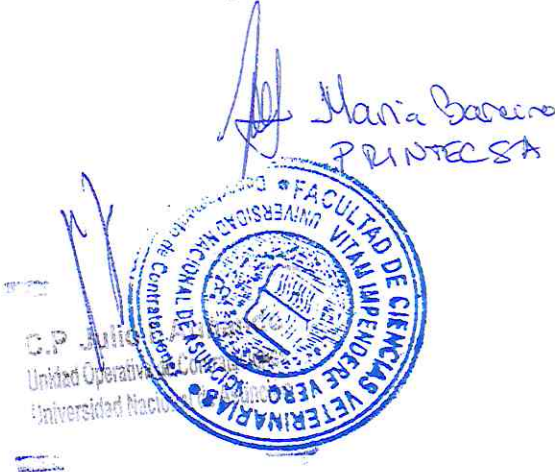 Maria Bareiro
PRINTECSA
FACULTAD DE CIENCIAS VETERINARIAS
UNIVERSIDAD NACIONAL DE ASUNCION
VITAM IMPENDERE VERO
Departamento de Contrataciones
C.P Julio
Unidad Operativa de
Universidad Nacional de Asunción